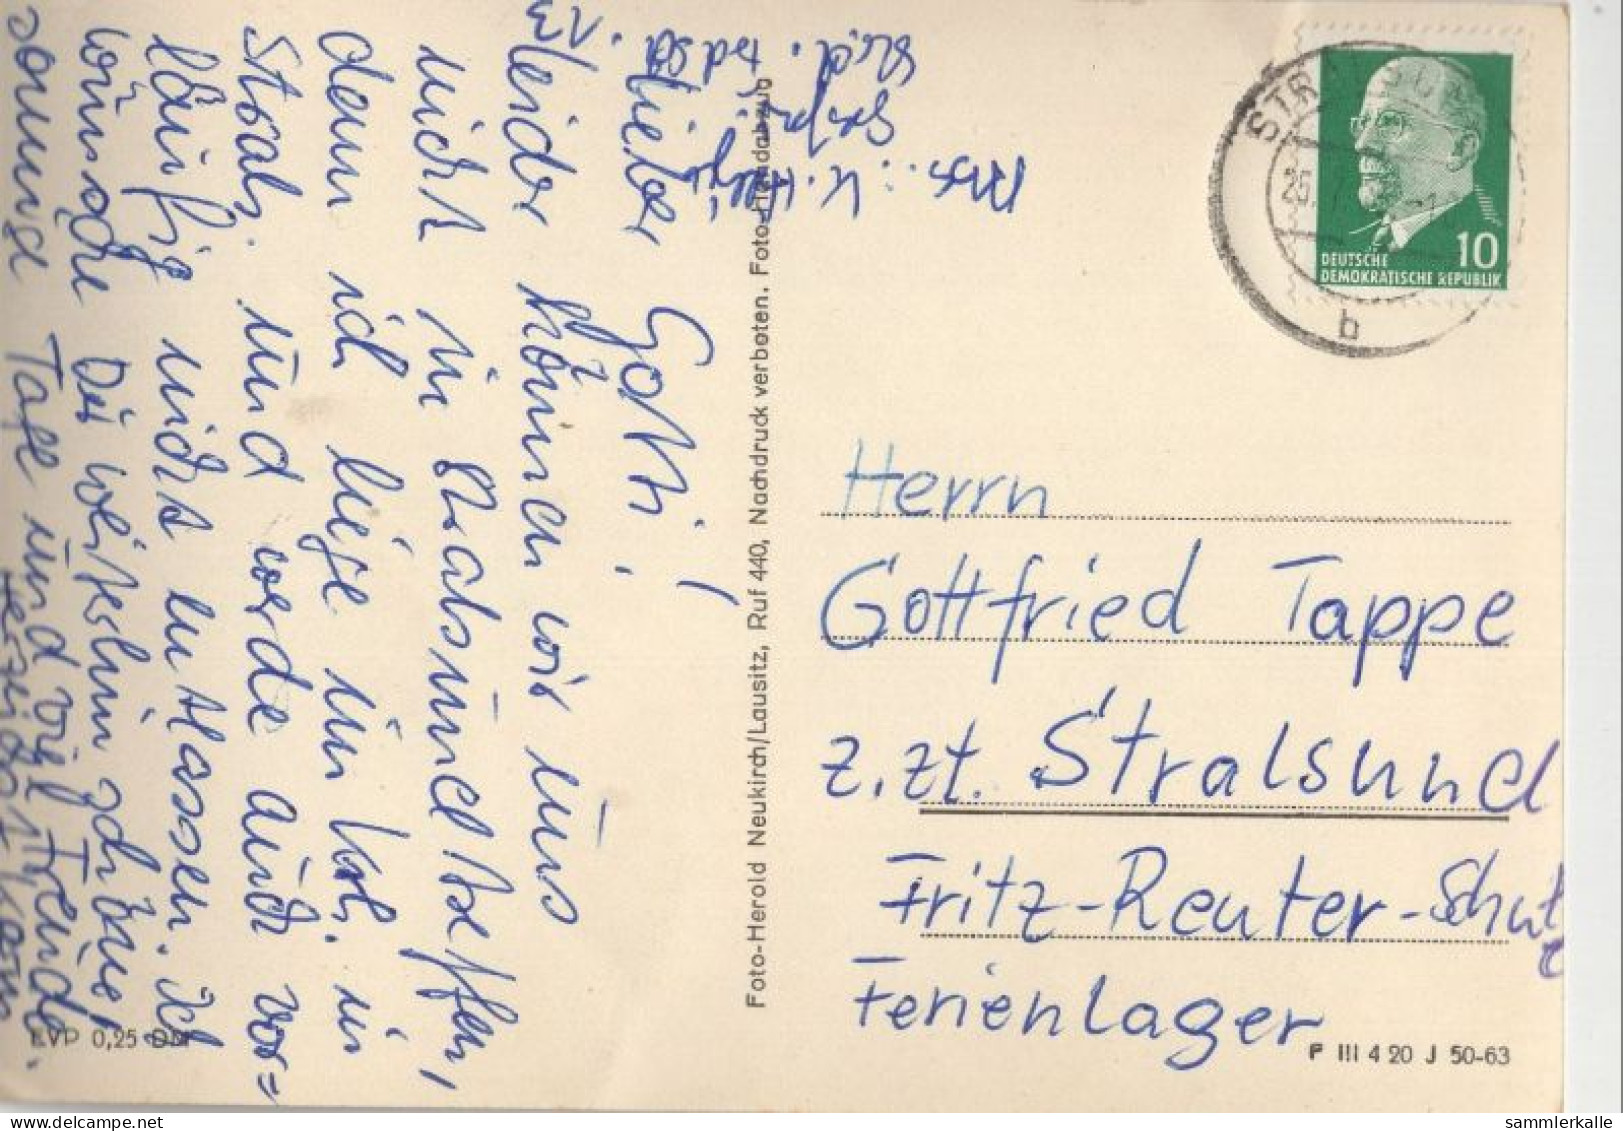 Lieber Gotti!
Leider können wir uns
nicht in Stralsund treffen,
denn ich liege im Krh. in
Strals. und werde auch vor=
läufig nicht entlassen. Ich
wünsche Dir weiterhin schöne,
sonnige Tage und viel Freude.
Herzlichst
Abs.: K.
Foto-Herold Neukirch/Lausitz, Ruf 440, Nachdruck verboten. Foto-Handabzug
STRALSUND
25.
b
10
DEUTSCHE
DEMOKRATISCHE REPUBLIK
Herrn
Gottfried Tappe
z.zt. Stralsund
Fritz-Reuter-Schule
Ferienlager
EVP 0,25 DM
F III 4 20 J 50-63
sammlerkalle